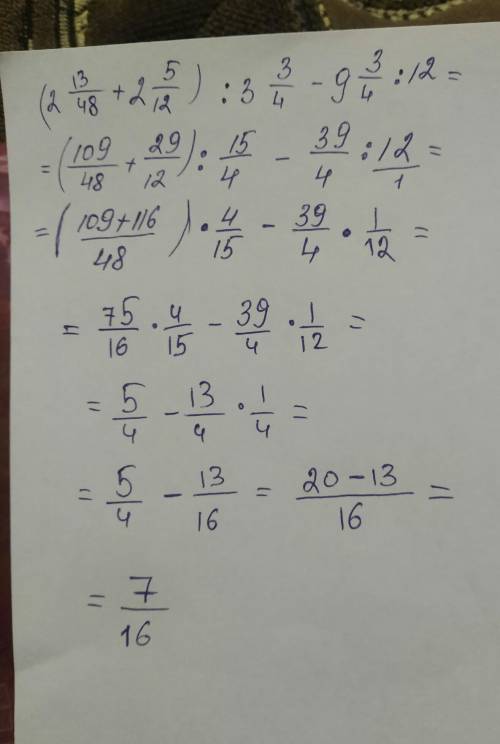 (2 13/48 + 2 5/12) : 3 3/4 - 9 3/4 : 12 =
= (109/48 + 29/12) : 15/4 - 39/4 : 12/1 =
= (109+116/48) · 4/15 - 39/4 · 1/12 =
= 75/16 · 4/15 - 39/4 · 1/12 =
= 5/4 - 13/4 · 1/4 =
= 5/4 - 13/16 = 20-13/16 =
= 7/16